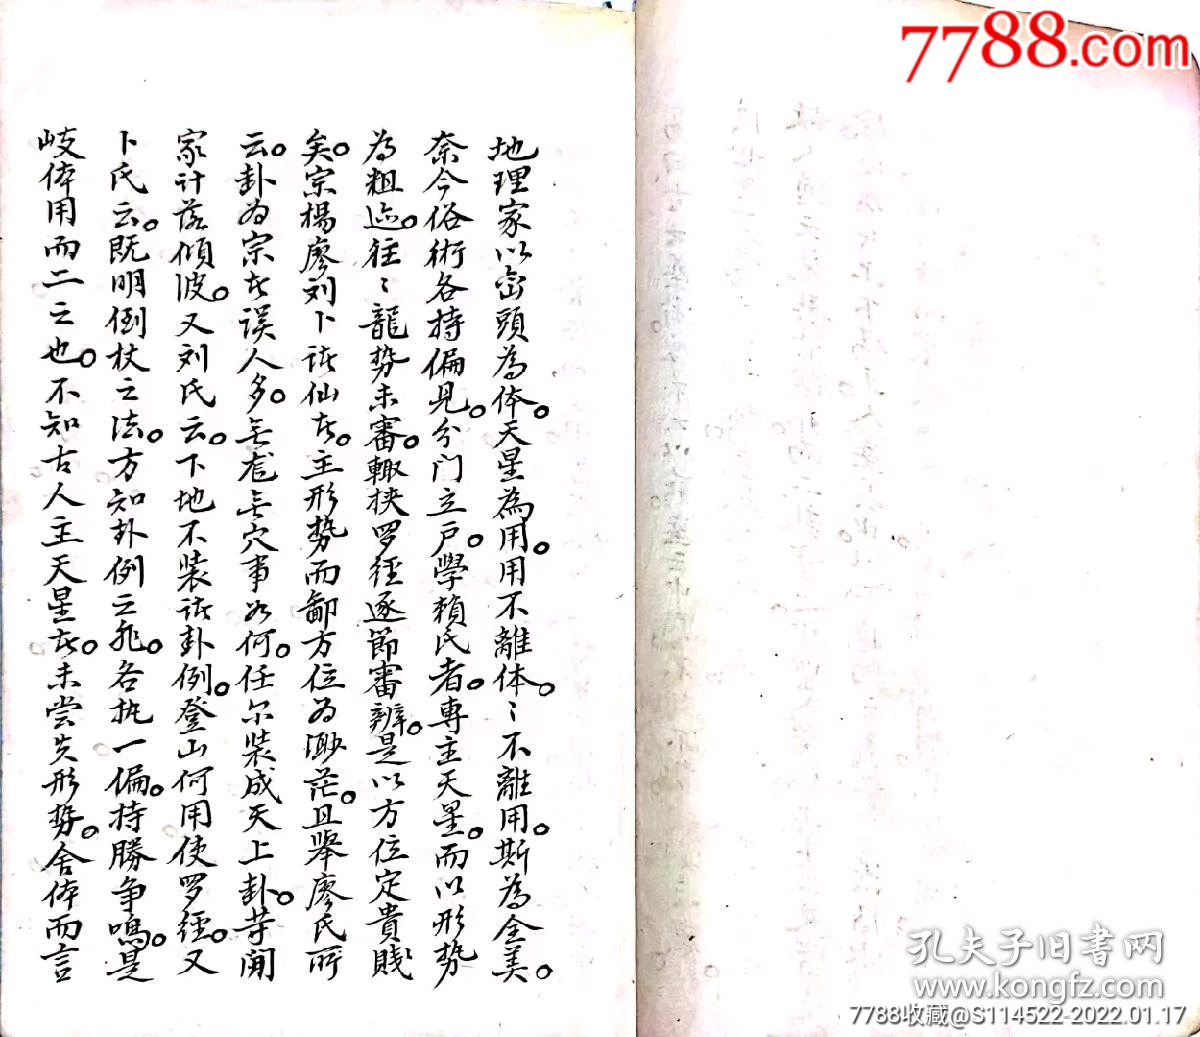 地理家以峦頭為体。天星為用。用不離体。〻不離用。斯為全美。
奈今俗術各持偏見。分门立戸。學賴氏者。專主天星。而以形势
為粗迹。往〻龍势未審。輙挟罗經逐節審辨。是以方位定貴賎
矣。宗楊廖刘卜诸仙者。主形势而鄙方位为渺茫。且舉廖氏所
云。卦为宗者误人多。無龙無穴事如何。任尔装成天上卦。等闲
家计落傾波。又刘氏云。下地不装诸卦例。登山何用使罗經。又
卜氏云。既明倒杖之法。方知卦例之非。各执一偏。持勝争鳴。是
歧体用而二之也。不知古人主天星者。未尝失形势。舍体而言
7788.com
孔夫子旧书网
www.kongfz.com
7788收藏@S114522-2022.01.17